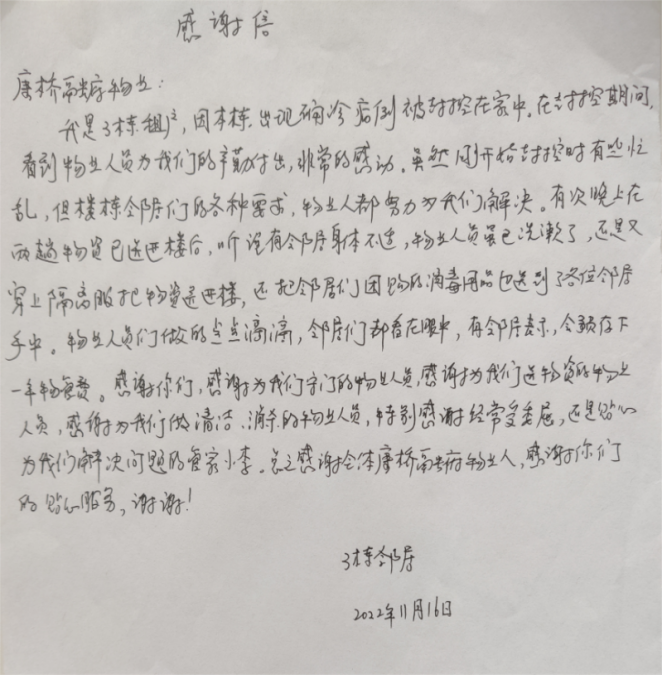 感谢信
唐桥 府物业：
我是3栋租户，因本栋出现确诊病例被封控在家中。在封控期间，
看到物业人员为我们的辛勤付出，非常的感动。虽然刚开始封控时有些忙
乱，但楼栋邻居们的各种要求，物业人都努力为我们解决。有次晚上在
两趟物资已送进楼后，听说有邻居身体不适，物业人员虽已洗漱了，还是又
穿上隔离服把物资送进楼，还把邻居们团购的消毒用品也送到了各位邻居
手中。物业人员们做的点点滴滴，邻居们都看在眼中，有邻居表示，全额存下
一年物管费。感谢你们，感谢为我们守门的物业人员，感谢为我们送物资的物业
人员，感谢为我们做清洁、消杀的物业人员，特别感谢经常受委屈，还是贴心
为我们解决问题的管家小李。总之感谢全体唐桥 府物业人，感谢你们
的贴心服务，谢谢！
3栋邻居
2022年11月16日